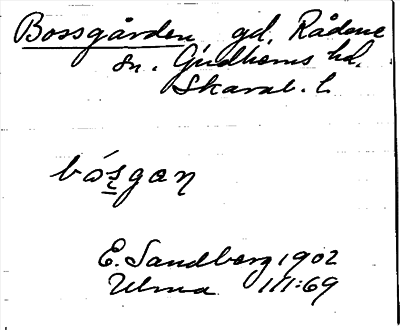 Bossgården gd. Rådene
sn. Gudhems hd.
Skarab. l.
bósgaɳ
E. Sandberg 1902
Ulma 111:69